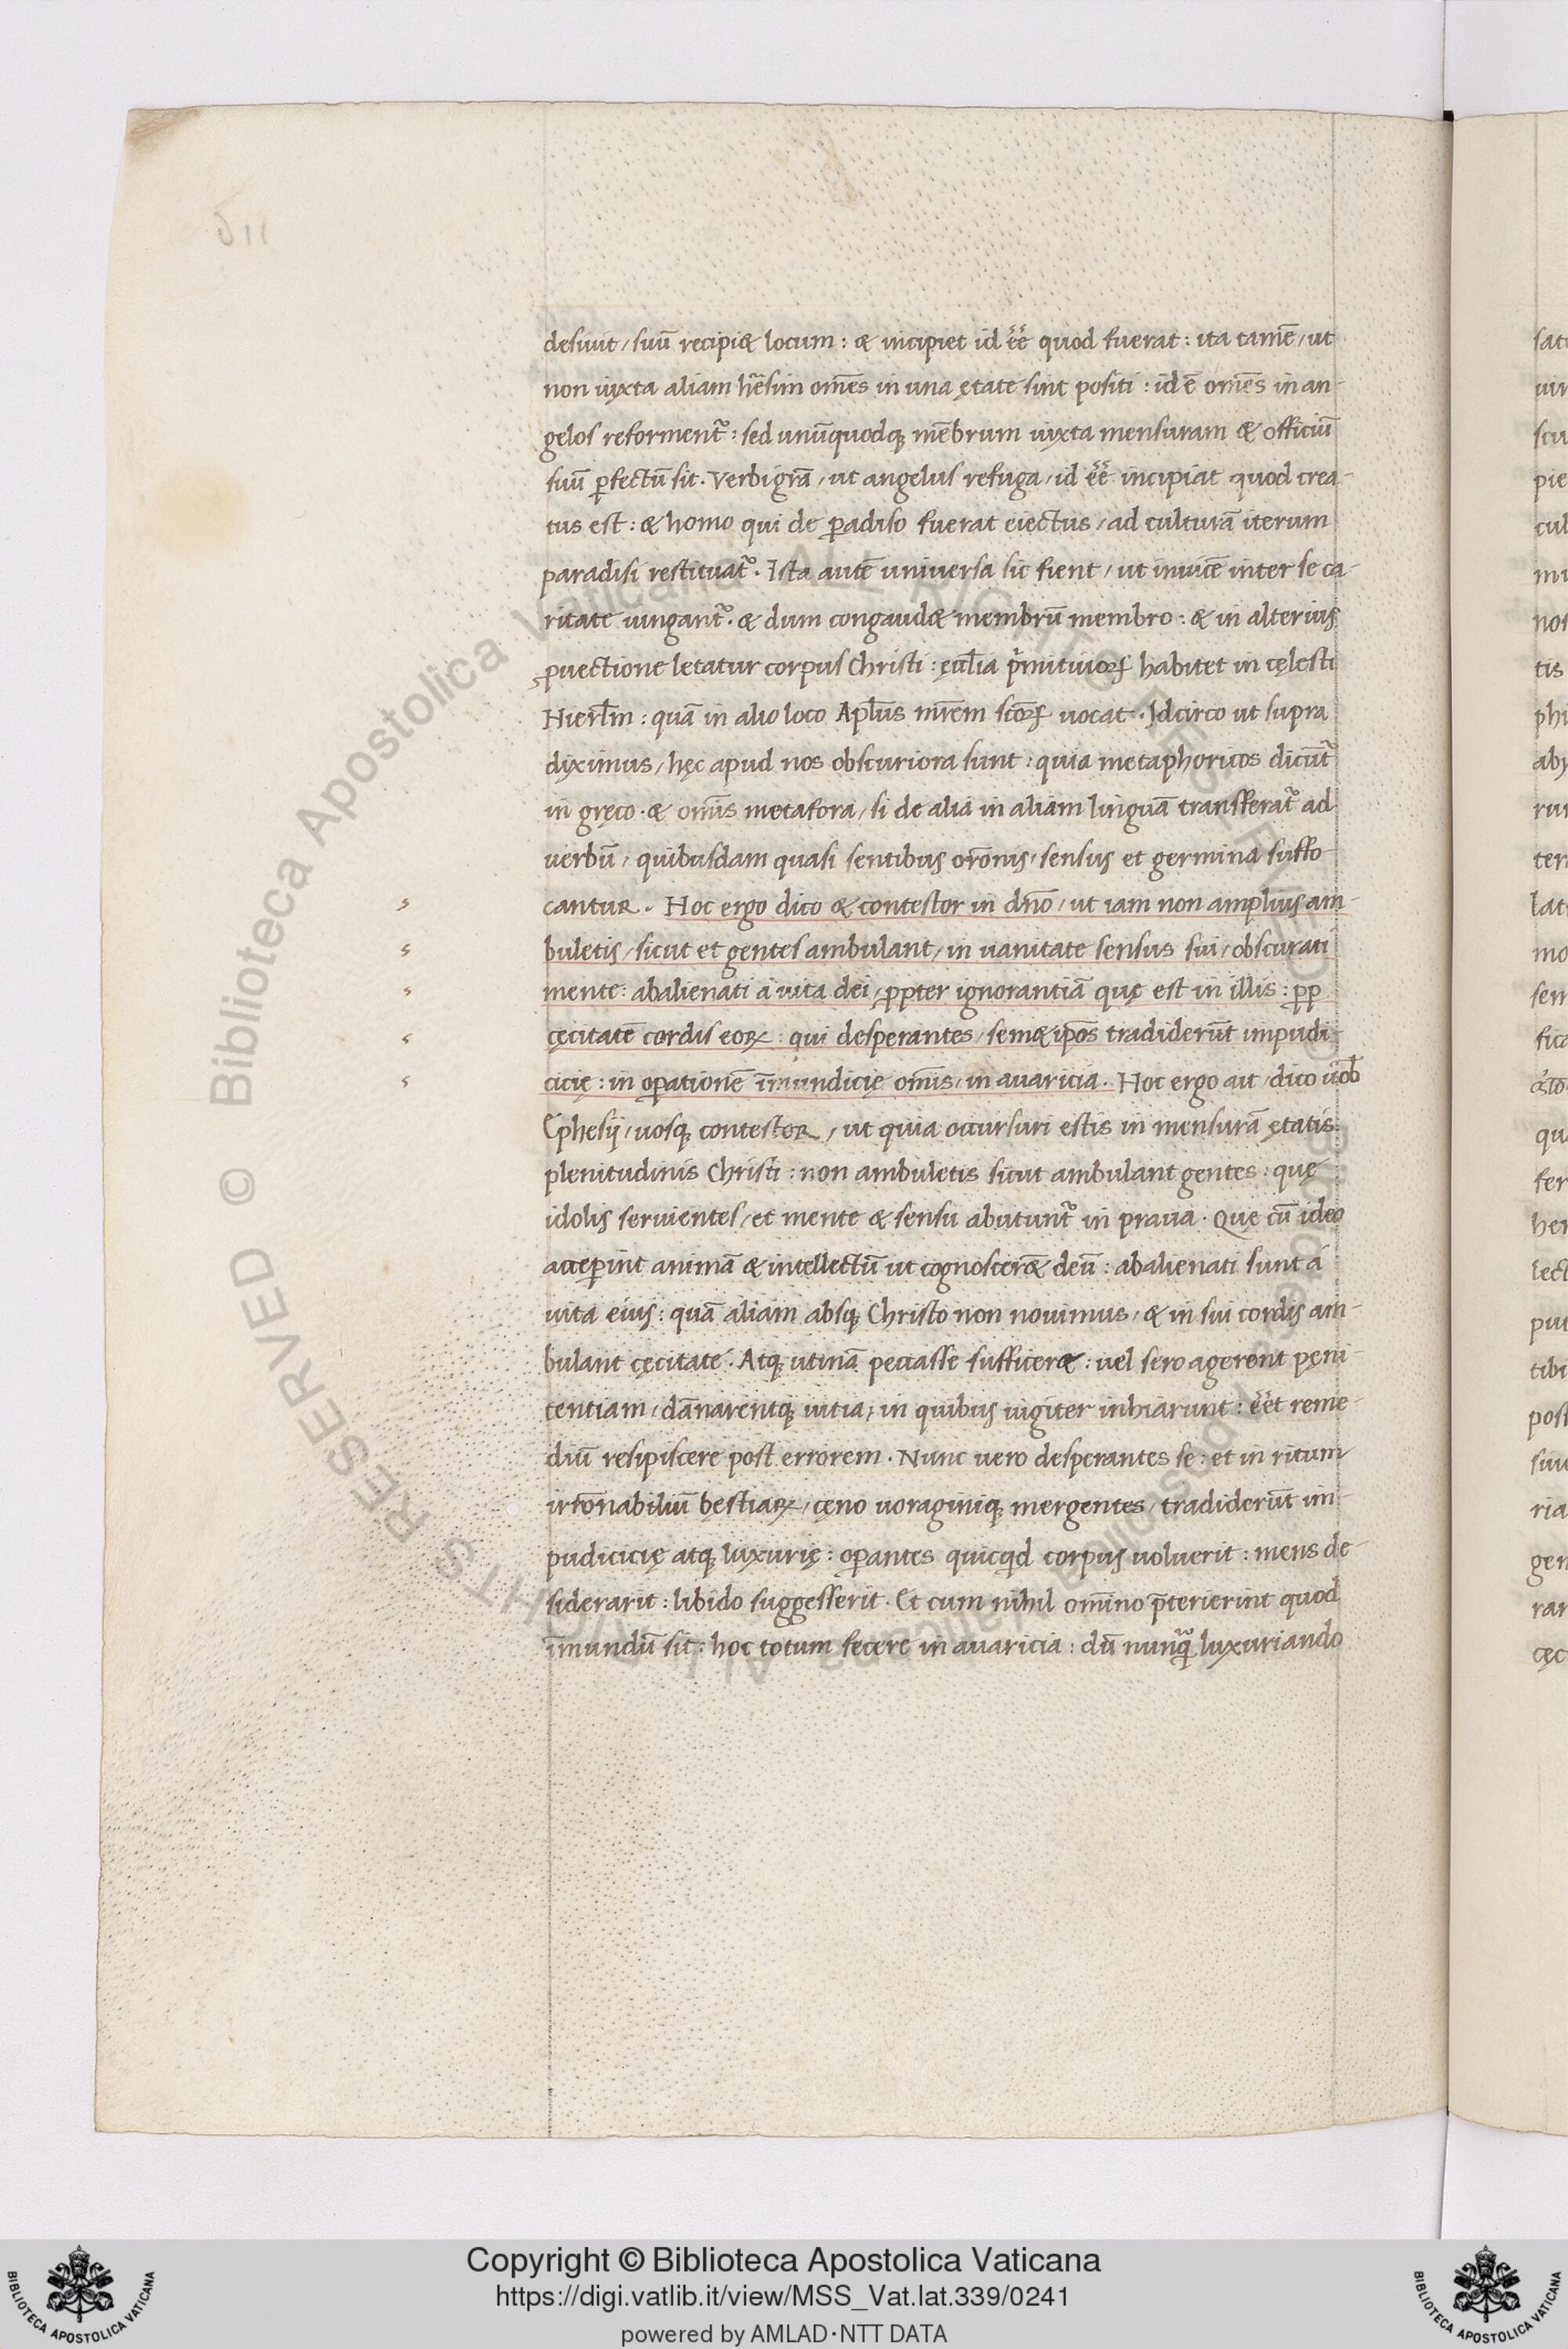 desiuit, suū recipi&locum: & incipiet id eē quod fuerat: ita tamē, ut
non iuxta aliam hēsim om̄es in una ętate sint positi: id ē om̄es in an-
gelos reforment᷑: sed unūquodq; mēbrum iuxta mensuram & officiū
suū ꝑfectū sit. Verbigrā, ut angelus refuga, id eē incipiat quod crea-
tus est: & homo qui de ꝑadiso fuerat eiectus, ad culturā iterum
paradisi restituat᷑. Ista autē universa sic fient, ut inuicē inter se ca-
ritate iungant᷑. & dum congaud& membrū membro: & in alterius
ꝓuectione letatur corpus Christi: ęcc̄lia pͥmitiuorꝝ habitet in cęlesti
Hierl̄m: quā in alio loco Apl̄us mr̄em sc̄orꝝ uocat. Idcirco ut supra
diximus, hęc apud nos obscuriora sunt: quia metaphoricos dicūt᷑
in gręco. & om̄is metafora, si de alia in aliam linguā transferat᷑ ad
uerbū, quibusdam quasi sentibus or̄onis, sensus et germina suffo-
cantur. Hoc ergo dico & contestor in dn̄o, ut iam non amplius am-
buletis, sicut et gentes ambulant, in uanitate sensus sui, obscurati
mente: abalienati á vita dei, ꝓpter ignorantiā quę est in illis: ꝓp
cęcitatē cordis eoꝝ: qui desperantes, sem&ip̄os tradiderūt impudi-
cicię: in oꝑationē īmundicię om̄is, in auaricia. Hoc ergo ait, dico uob̄
Ephesij, uosq; contestor, ut quia occursuri estis in mensurā ętatis
plenitudinis Christi: non ambuletis sicut ambulant gentes: quę
idolis seruientes, et mente & sensu abutunt᷑ in praua. Quę cū ideo
acceꝑint animā & intellectū ut cognoscer& deū: abalienati sunt á
uita eius: quā aliam absq; Christo non nouimus, & in sui cordis am-
bulant cęcitate. Atq; utinā peccasse sufficer&: uel sero agerent pęni-
tentiam, dānarentq; uitia, in quibus iugiter inhiarunt: eēt reme-
diū resipiscere post errorem. Nunc uero desperantes se: et in ritum
irr̄onabiliū bestiaꝝ, cęno uoraginiq; mergentes, tradiderūt im-
pudicicię atq; luxurię: oꝑantes quicqͥd corpus uoluerit: mens de-
siderarit: libido suggesserit. Et cum nihil om̄ino p̄terierint quod
īmundū sit: hoc totum fecere in auaricia: dū nunqͣ luxuriando
Copyright © Biblioteca Apostolica Vaticana
https://digi.vatlib.it/view/MSS_Vat.lat.339/0241
powered by AMLAD·NTT DATA